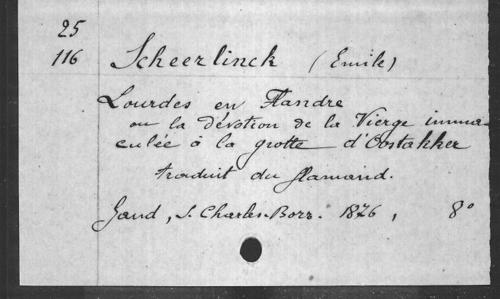 25
116 Scheerlinck (Emile)
Lourdes en Flandre
ou la dévotion de la Vierge imma-
culée à la grotte d'Oostakker
traduit du flamand.
Gand, S. Charles-Borr. 1876, 8°